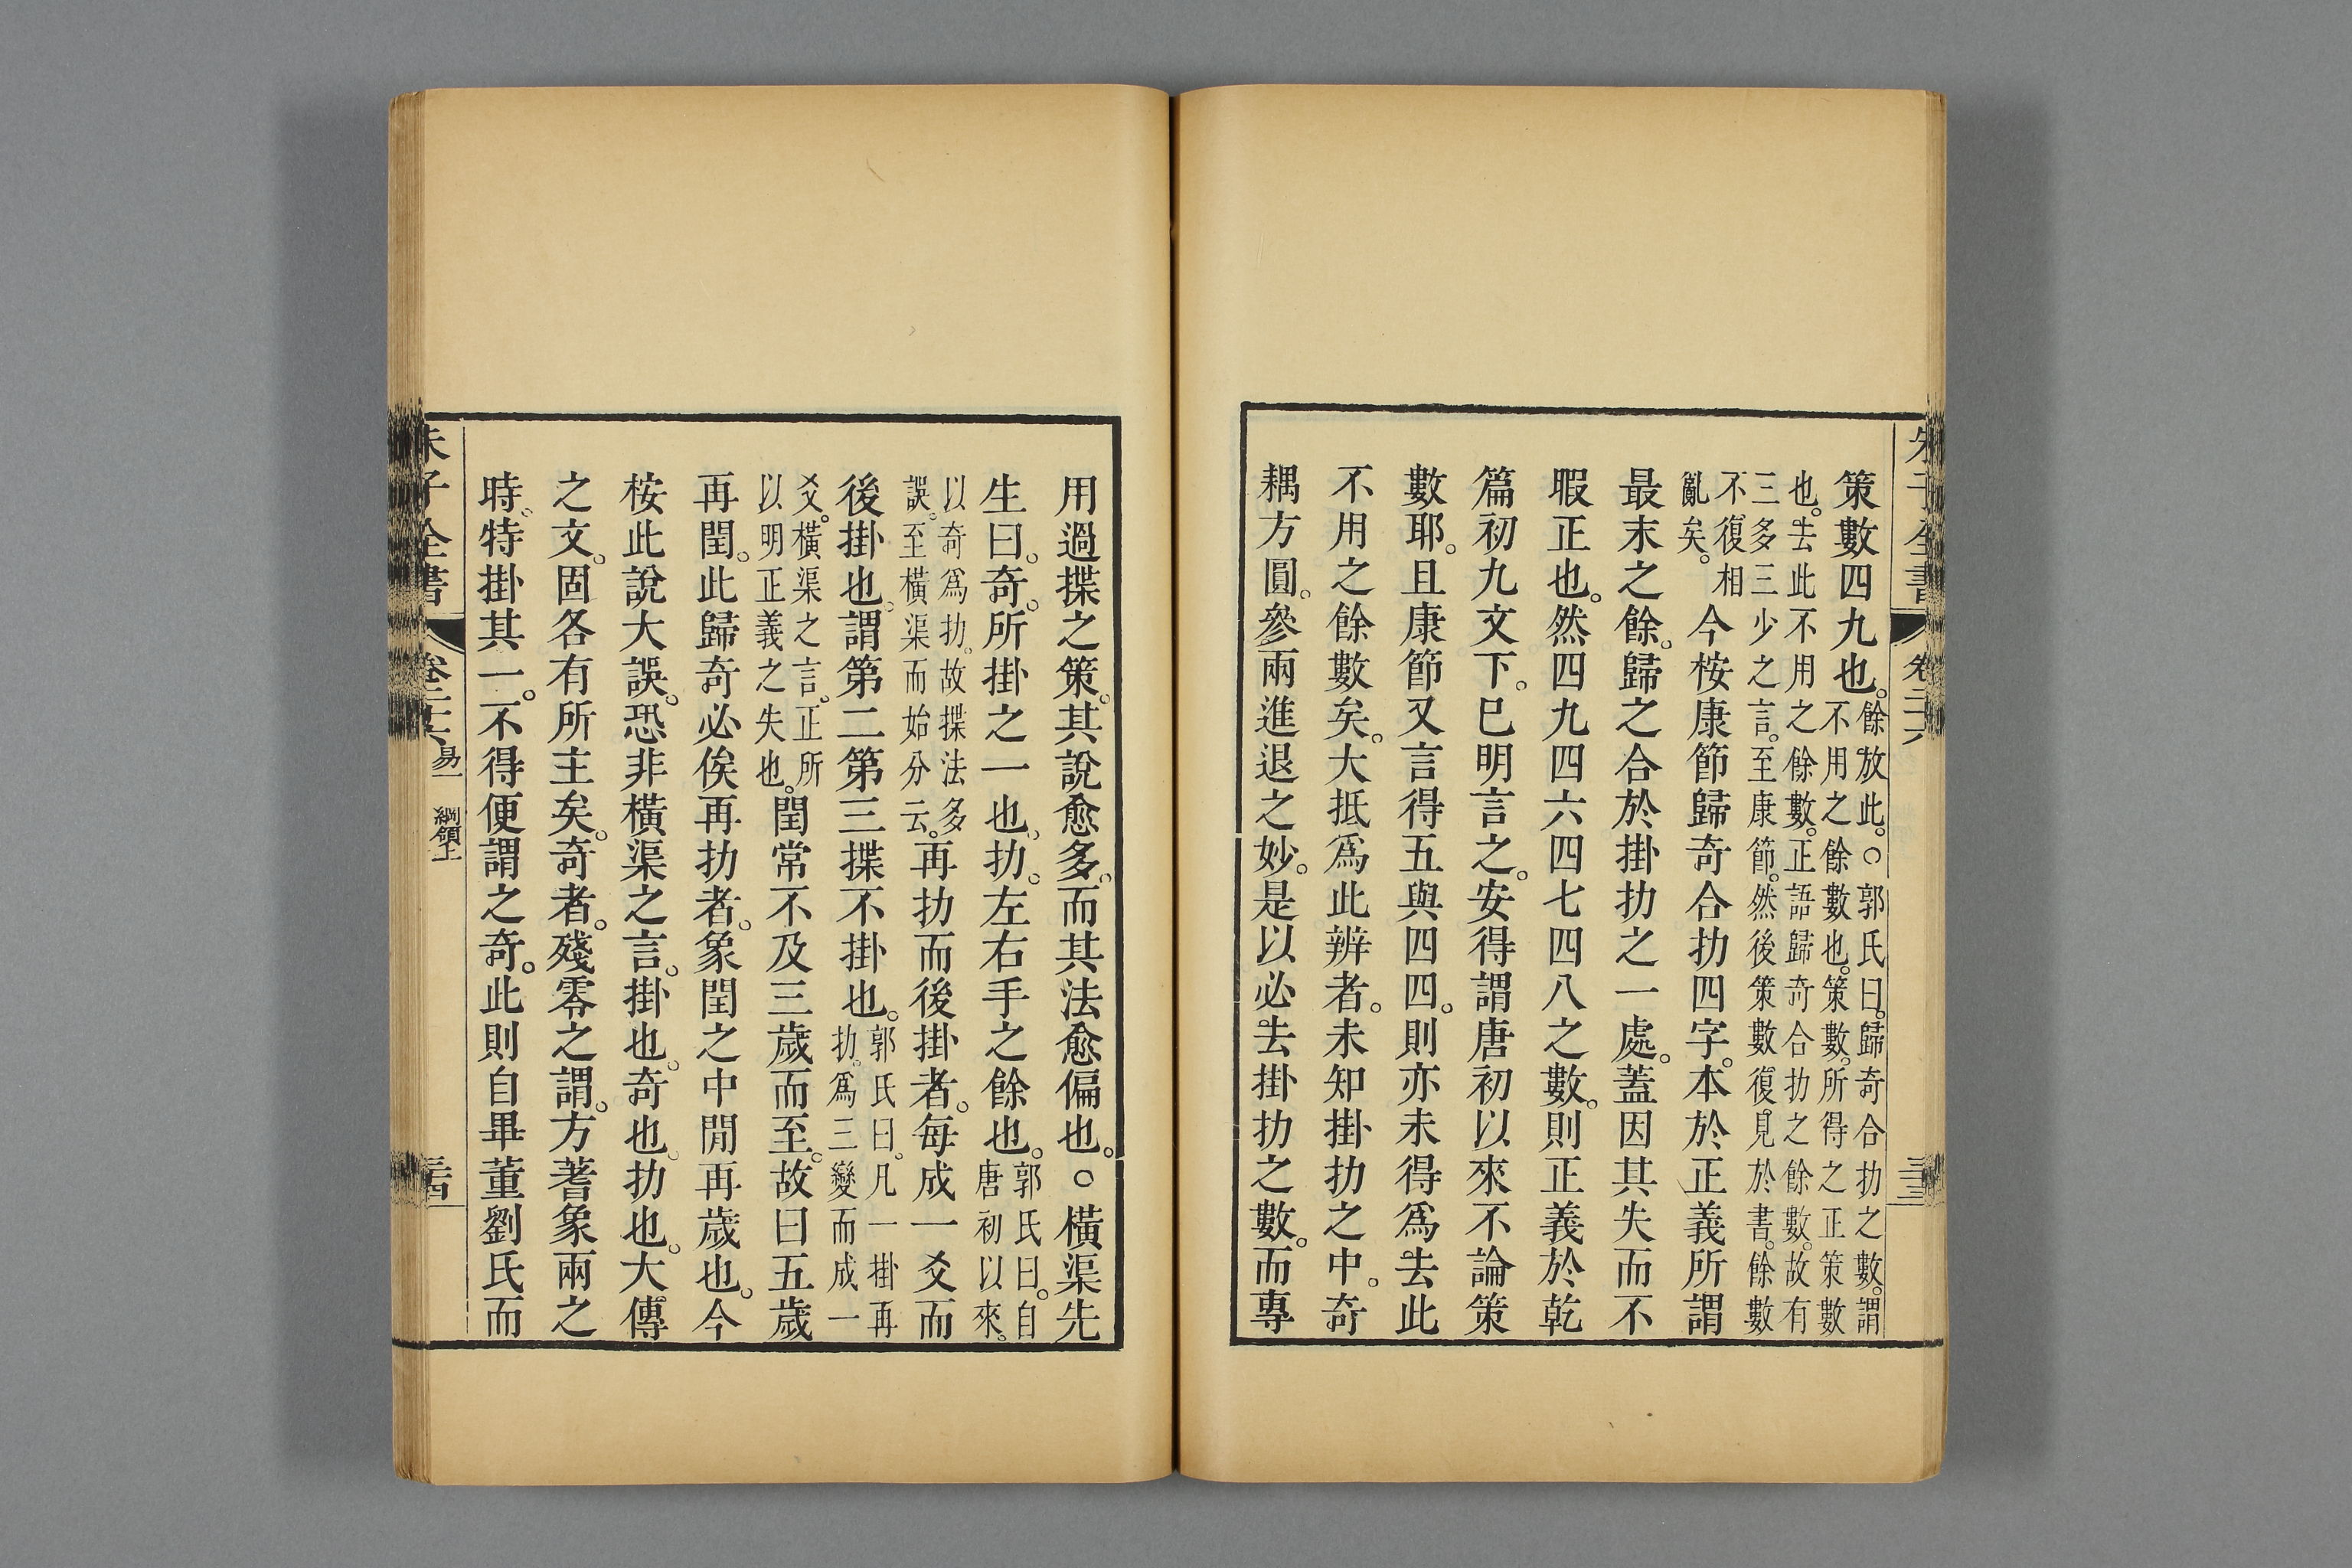 朱子全書 卷二十六 三十三
策數四九也。餘放此。○郭氏曰。歸奇合扐之數。謂
不用之餘數也。策數。所得之正策數
也。去此不用之餘數。正語歸奇合扐之餘數。故有
三多三少之言。至康節。然後策數復見於書。餘數
不復相
亂矣。今桉康節歸奇合扐四字。本於正義所謂
最末之餘。歸之合於掛扐之一處。蓋因其失而不
暇正也。然四九四六四七四八之數。則正義於乾
篇初九文下。巳明言之。安得謂唐初以來不論策
數耶。且康節又言得五與四四。則亦未得爲去此
不用之餘數矣。大抵爲此辨者。未知掛扐之中。奇
耦方圓。參兩進退之妙。是以必去掛扐之數。而專
用過揲之策。其說愈多。而其法愈偏也。○橫渠先
生曰。奇。所掛之一也。扐。左右手之餘也。郭氏曰。自
唐初以來。
以奇爲扐。故揲法多
誤。至橫渠而始分云。再扐而後掛者。每成一爻而
後掛也。謂第二第三揲不掛也。郭氏曰。凡一掛再
扐。爲三變而成一
爻。橫渠之言。正所
以明正義之失也。閏常不及三歲而至。故曰五歲
再閏。此歸奇必俟再扐者。象閏之中閒再歲也。今
桉此說大誤。恐非橫渠之言。掛也。奇也。扐也。大傳
之文。固各有所主矣。奇者。殘零之謂。方蓍象兩之
時。特掛其一。不得便謂之奇。此則自畢董劉氏而
朱子全書 卷二十六 易一 綱領上 三十四